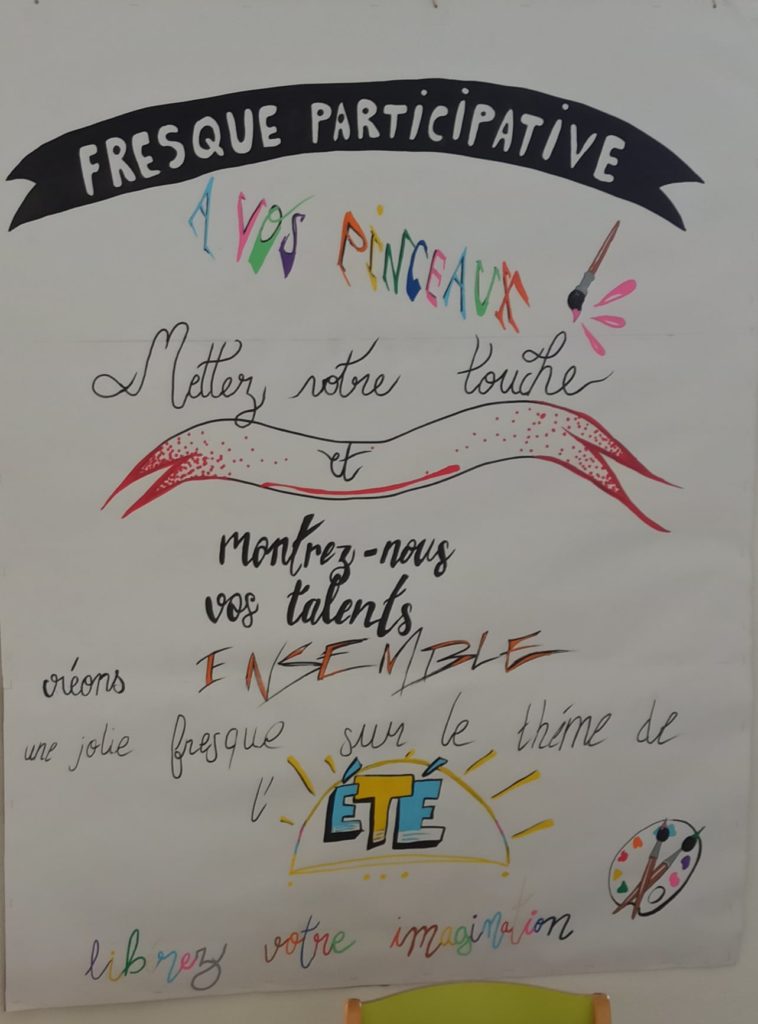 FRESQUE PARTICIPATIVE
A VOS PINCEAUX
Mettez votre touche
et
montrez-nous
vos talents
créons ENSEMBLE
une jolie fresque sur le théme de
l'ÉTÉ
librez votre imagination